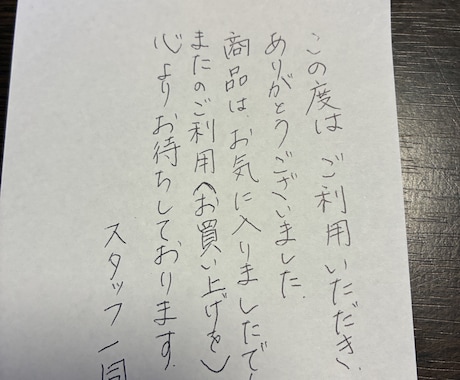 この度は ご利用いただき、
ありがとうございました。
商品は、お気に入りましたで
またのご利用(お買い上げを)
心よりお待ちしております。
スタッフ一同